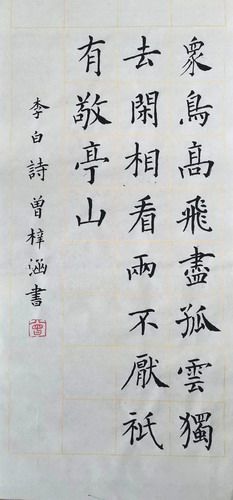 衆鳥高飛盡孤雲獨
去閑相看兩不厭衹
有敬亭山
李白詩曾梓涵書